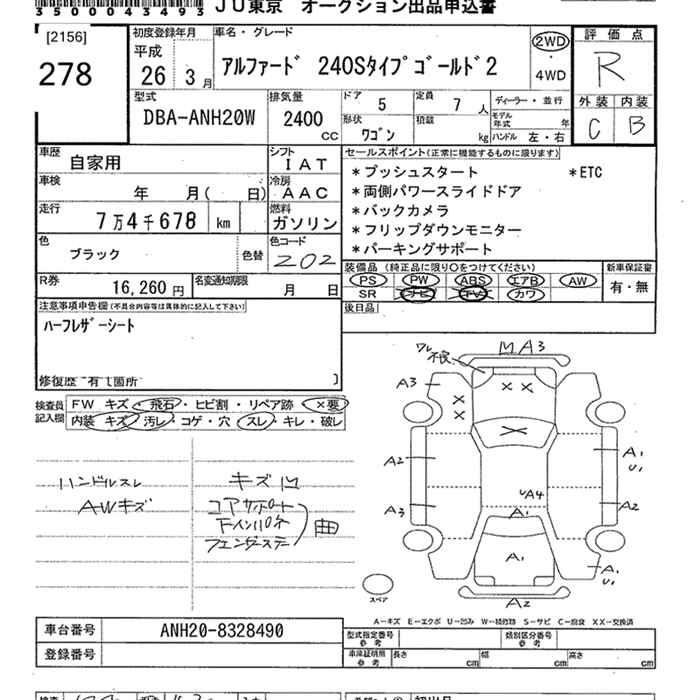 3500043493 JU東京 オークション出品申込書
[2156]
278
初度登録年月
平成
26年 3月
車名・グレード
アルファード 240Sタイプゴールド2
2WD
・
4WD
評価点
R
外装 内装
C B
型式
DBA-ANH20W
排気量
2400 CC
ドア 5
形状 ワゴン
定員 7人
積載 kg
ディーラー・並行
モデル年式 年
ハンドル 左・右
車歴 自家用
シフト IAT
車検 年 月( 日)
冷房 AAC
走行 7万4千678 km
燃料 ガソリン
色 ブラック 色替
色コード 202
R券 16,260円
名変通知期限 月 日
セールスポイント(正常に機能するものに限ります)
*プッシュスタート *ETC
*両側パワースライドドア
*バックカメラ
*フリップダウンモニター
*パーキングサポート
装備品(純正品に限り○をつけてください)
PS PW ABS エアB AW
SR ナビ TV カワ
新車保証書
有・無
後日品
注意事項申告欄(不具合内容等は具体的に記入して下さい)
ハーフレザーシート
修復歴 有(箇所 )
検査員記入欄
FW キズ・飛石・ヒビ割・リペア跡 ×要
内装 キズ・汚レ・コゲ・穴・スレ・キレ・破レ
ハンドルスレ
AWキズ
キズ凹
コアサポート
フェンダーステー
曲
ワレ
不良
MA3
A3
××
×
×
×
A2
A3
A1
U1
A2
UA4
A1
A1
A1
U1
A2
スペア
A-キズ E-エクボ U-凹み W-補修跡 S-サビ C-腐食 XX-交換済
車台番号 ANH20-8328490
登録番号
型式指定番号 参考
類別区分番号 参考
車庫証明用 参考
長さ cm
幅 cm
高さ cm